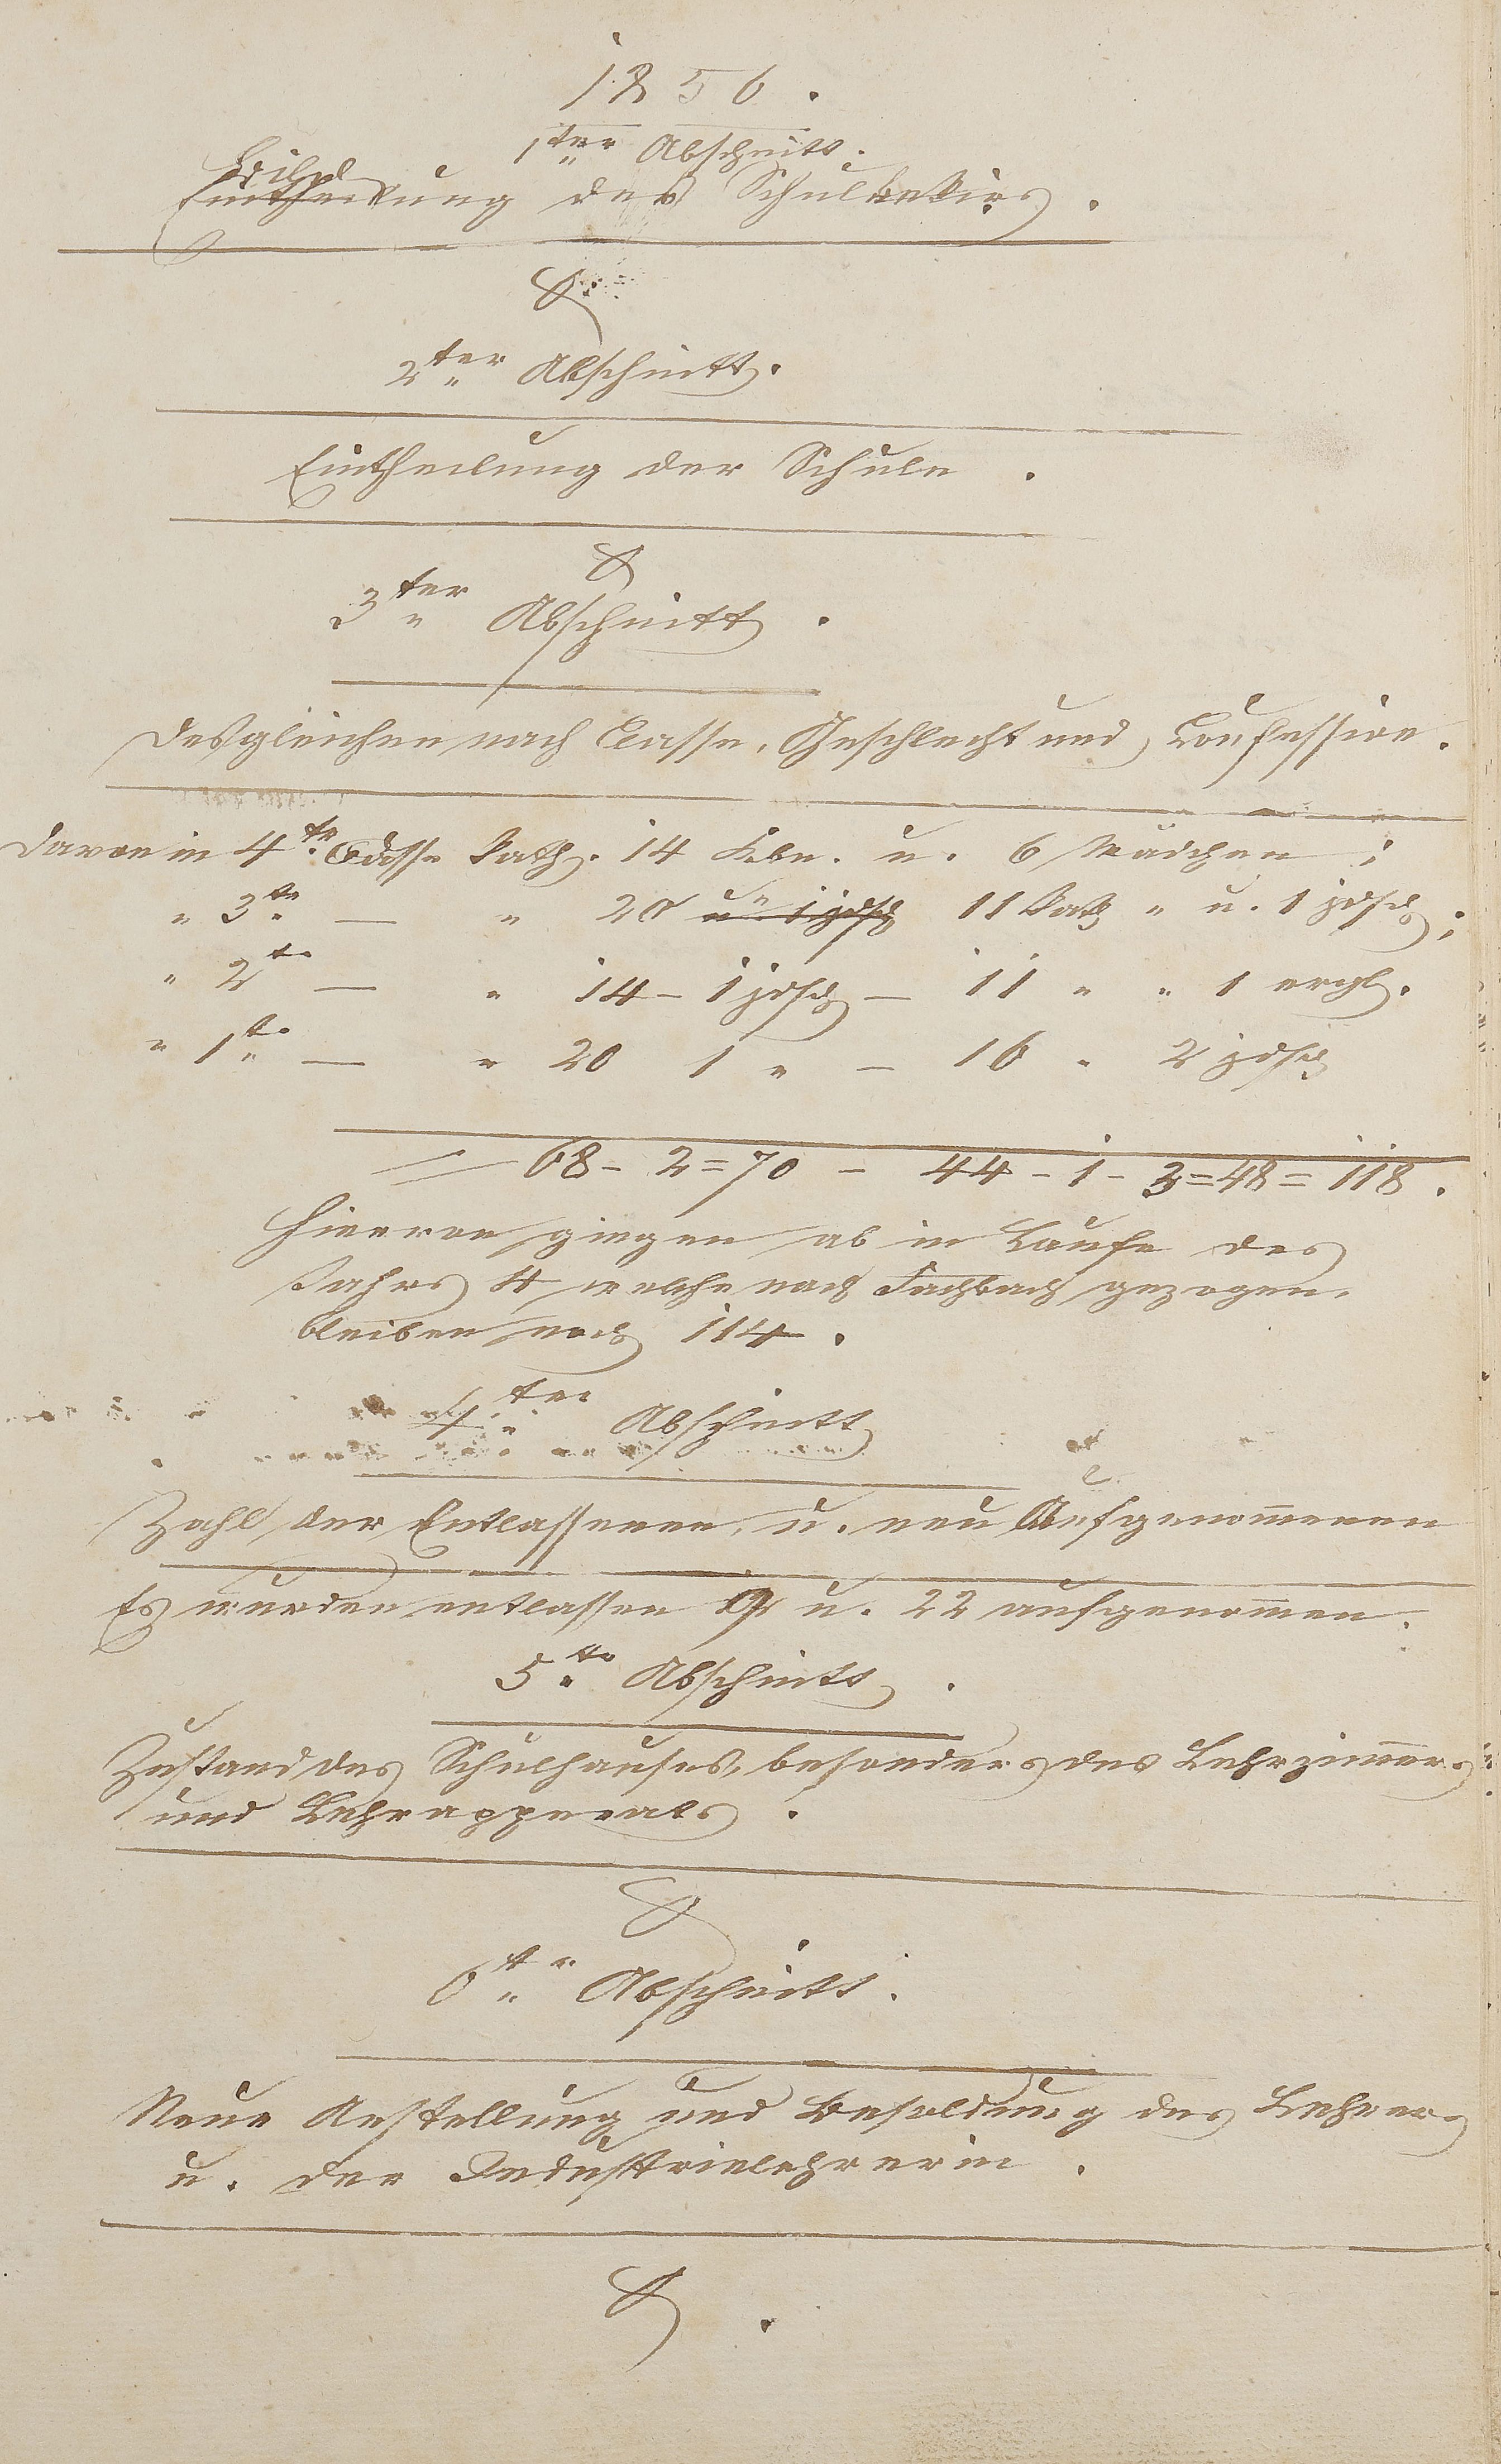 1856.
1ter Abschnitt.
Bild
Eintheilung des Schulbezirs.
2ter Abschnitt.
Eintheilung der Schule.
3ter Abschnitt.
Desgleichen nach Classe, Geschlecht und Confession.
Davon in 4te Classe Kath. 14 Kbn. u. 6 Mädchen;
" 3te — " 20 u 1 jdsch 11 Kath " u. 1 jdsch;
" 2te — " 14 - 1 jdsch — 11 " " 1 evgl.
" 1te — " 20 1 " — 16 " 2 jdsch
= 68 - 2 = 70 - 44 - 1 - 3 = 48 = 118.
Hiervon giengen ab im Laufe des
Jahrs 4 welche nach Fachbach gezogen.
bleiben noch 114.
4ter Abschnitt
Zahl der Entlassenen, u. neu Aufgenom̄enen
Es wurden entlassen 9 u. 22 aufgenom̄en.
5te Abschnitt.
Zustand des Schulhauses, besonders des Lehrzim̄ers
und Lehrapperats.
6te Abschnitt.
Neue Anstellung und Besoldung des Lehrers
u. der Industrielehrerin.